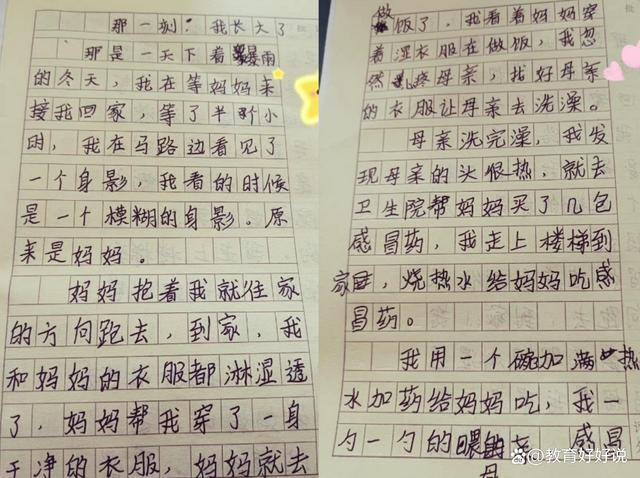 那一刻,我长大了
那是一天下着暴雨
的冬天,我在等妈妈来
接我回家,等了半个小
时,我在马路边看见了
一个身影,我看的时候
是一个模糊的身影。原
来是妈妈。
妈妈抱着我就往家
的方向跑去,到家,我
和妈妈的衣服都淋湿透
了,妈妈帮我穿了一身
干净的衣服,妈妈就去
做饭了,我看着妈妈穿
着湿衣服在做饭,我忽
然心疼母亲,找好母亲
的衣服让母亲去洗澡。
母亲洗完澡,我发
现母亲的头恨热,就去
卫生院帮妈妈买了几包
感冒药,我走上楼梯到
家,烧热水给妈妈吃感
冒药。
我用一个碗加满热
水加药给妈妈吃,我一
勺一勺的喂母亲,感冒
教育好好说